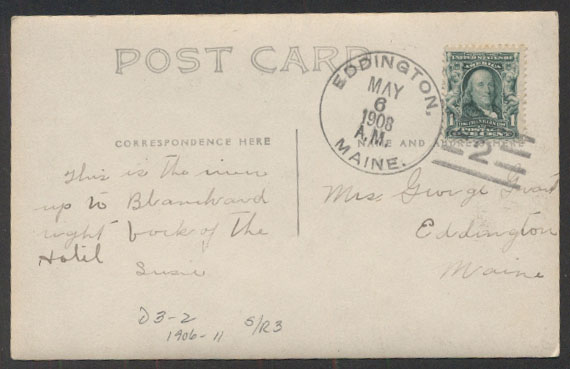 POST CARD
EDDINGTON,
MAY
6
1908
A.M.
MAINE.
UNITED STATES OF AMERICA
1 FRANKLIN 1
POSTAGE
ONE CENT
2
CORRESPONDENCE HERE
NAME AND ADDRESS HERE
This is the
up to Blanchard
right back of the
Hotel
Susie
Mrs. George
Eddington
Maine
D3-2
1906-11
S/R3